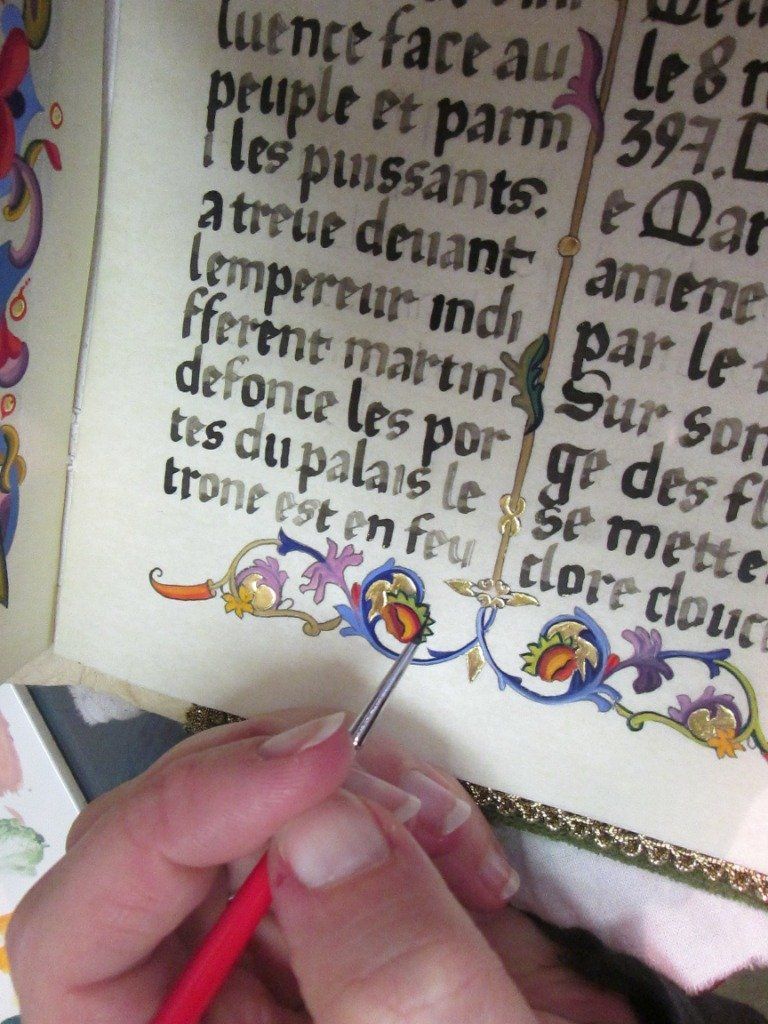 luence face au
peuple et parm
i les puissants.
a treue deuant
lempereur indi
fferent martin
defonce les por
tes du palais le
trone est en feu
le 8
397.
e
amene
par le
Sur son
ge des
se mette
clore douce